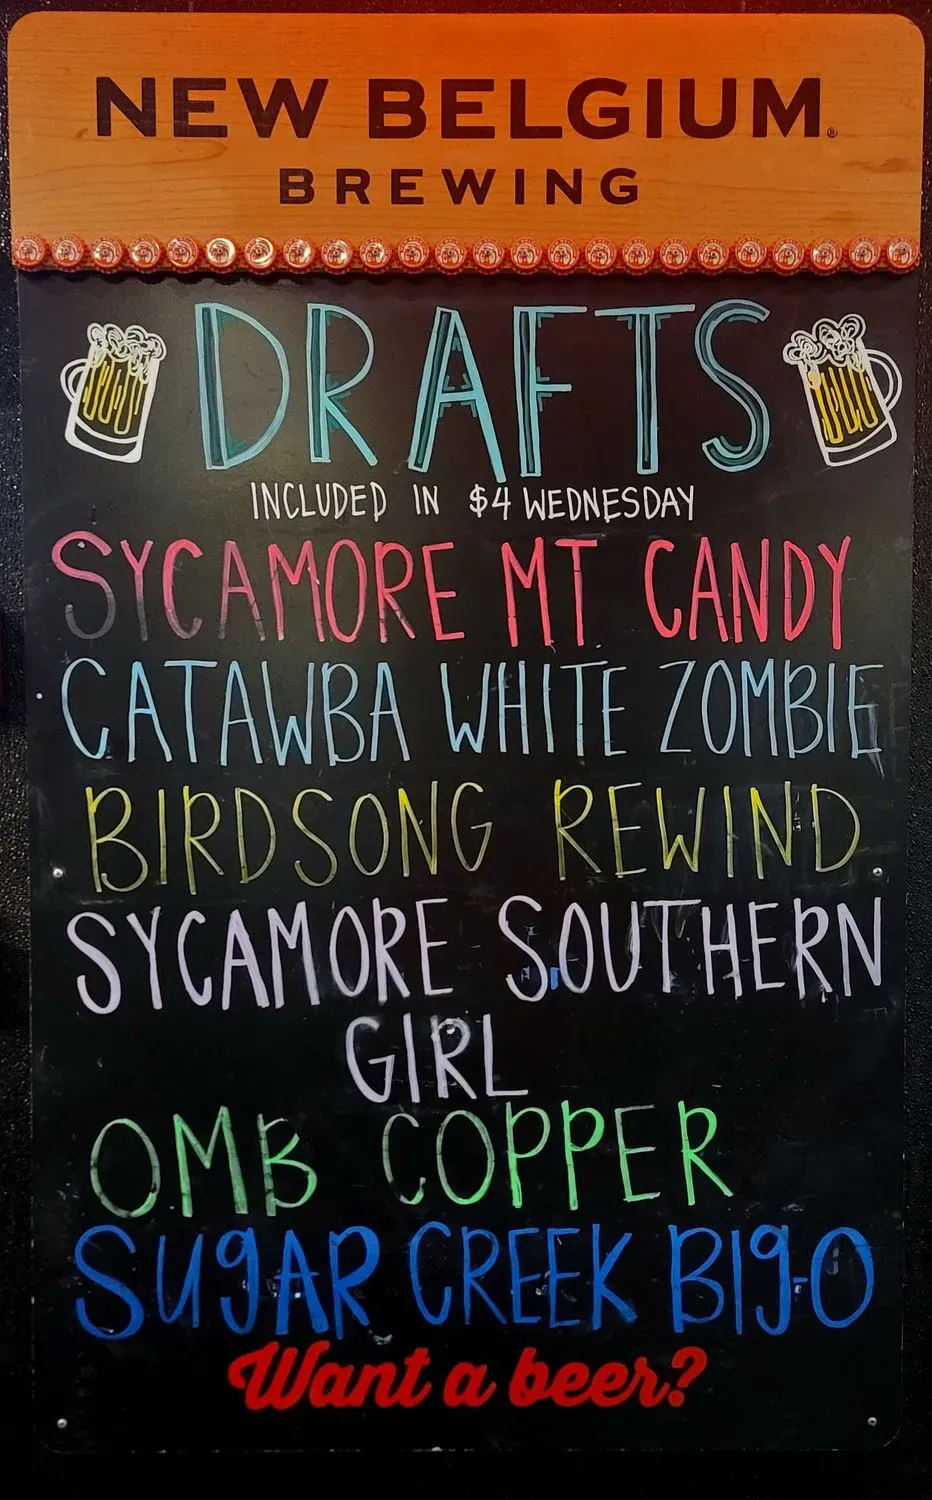 NEW BELGIUM®
BREWING
DRAFTS
INCLUDED IN $4 WEDNESDAY
SYCAMORE MT CANDY
CATAWBA WHITE ZOMBIE
BIRDSONG REWIND
SYCAMORE SOUTHERN
GIRL
OMB COPPER
SUgAR CREEK BIg-O
Want a beer?